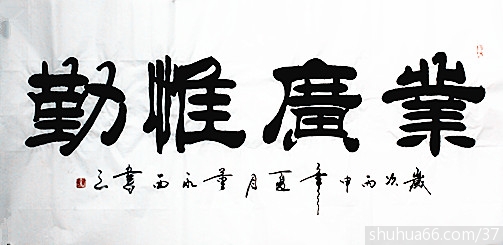 業廣惟勤
歲次丙申年夏月董永西書
shuhua66.com/37